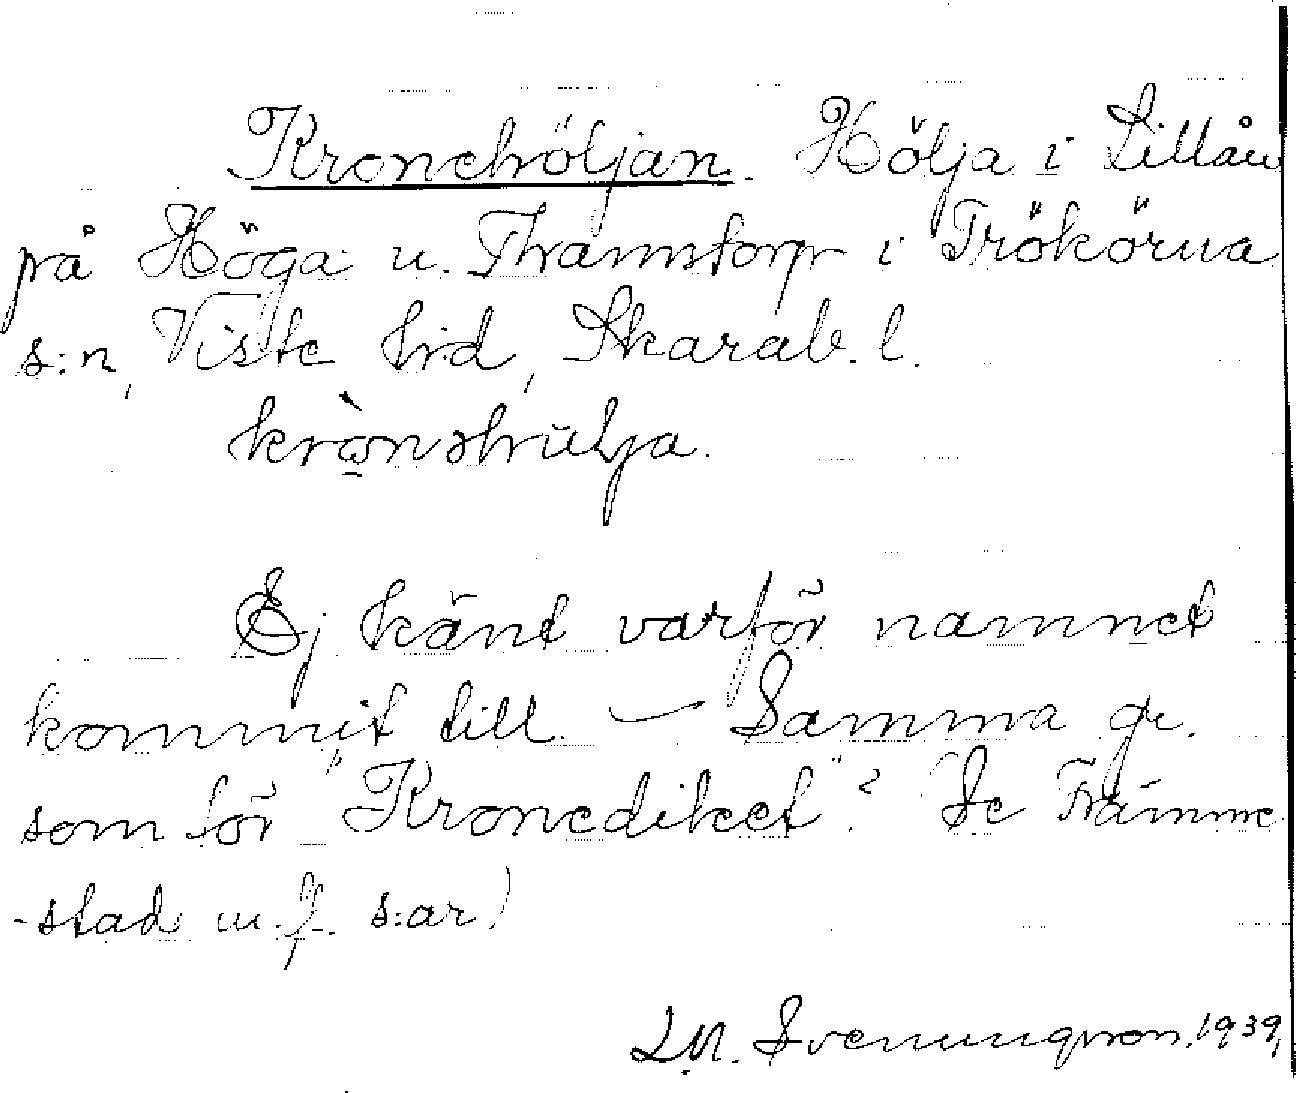 Kronehöljan. Hölja i Lillån
på Höga u. Thamstorp i Trökörna
s:n, Viste hrd, Skarab. l.
Ej känt varför namnet
kommit till. – Samma gr.
som för "Kronediket"? (Se Främme
-stad m.fl. s:ar)
L.M. Svenungsson. 1939,